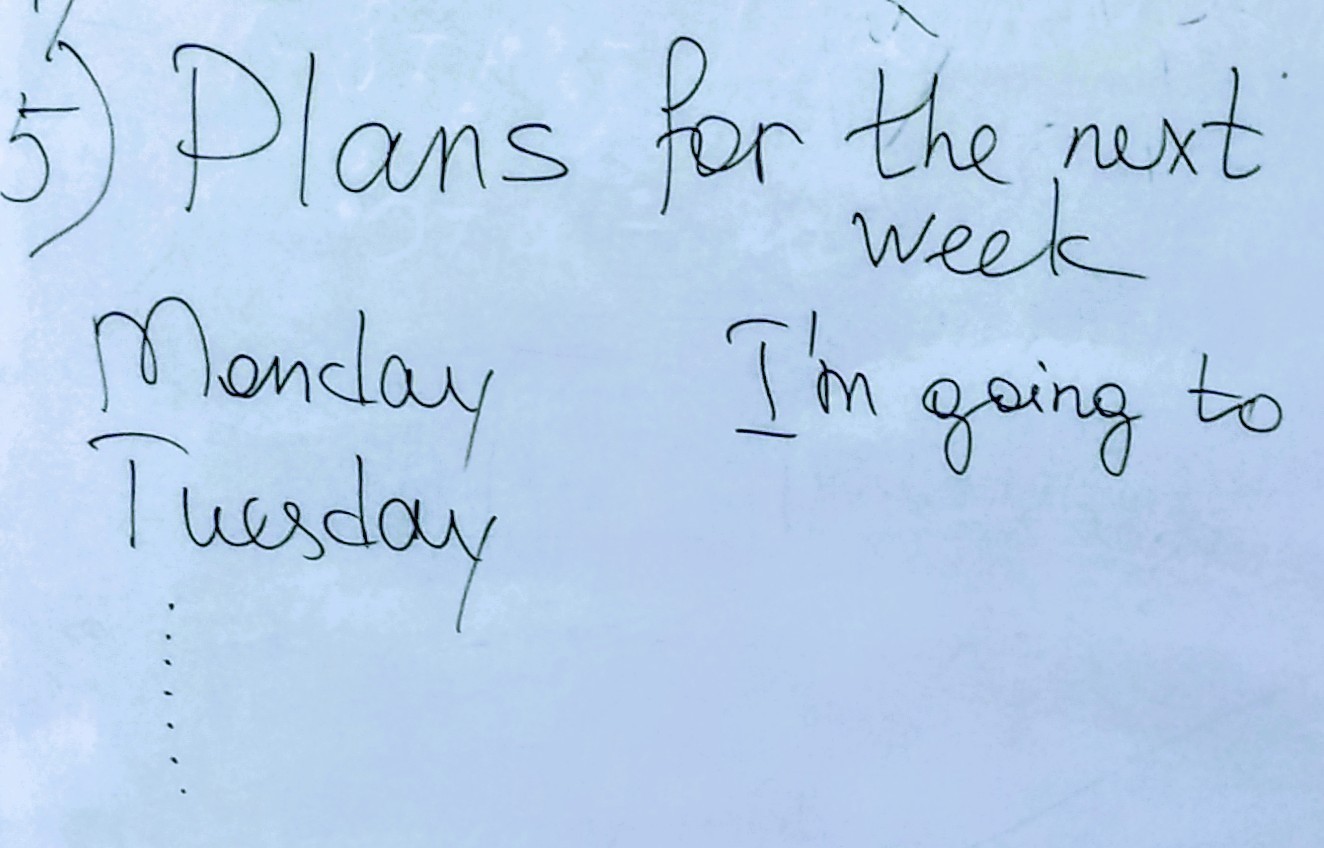 5) Plans for the next
week
Monday I'm going to
Tuesday
.......